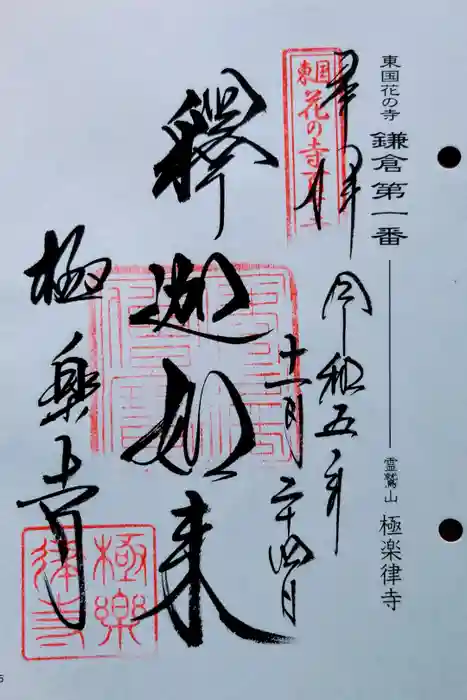 東国花の寺 鎌倉第一番
霊鷲山 極楽律寺
奉拝
令和五年
十一月二十四日
東国
花の寺百
釋迦如来
極楽寺
極樂
律寺
5